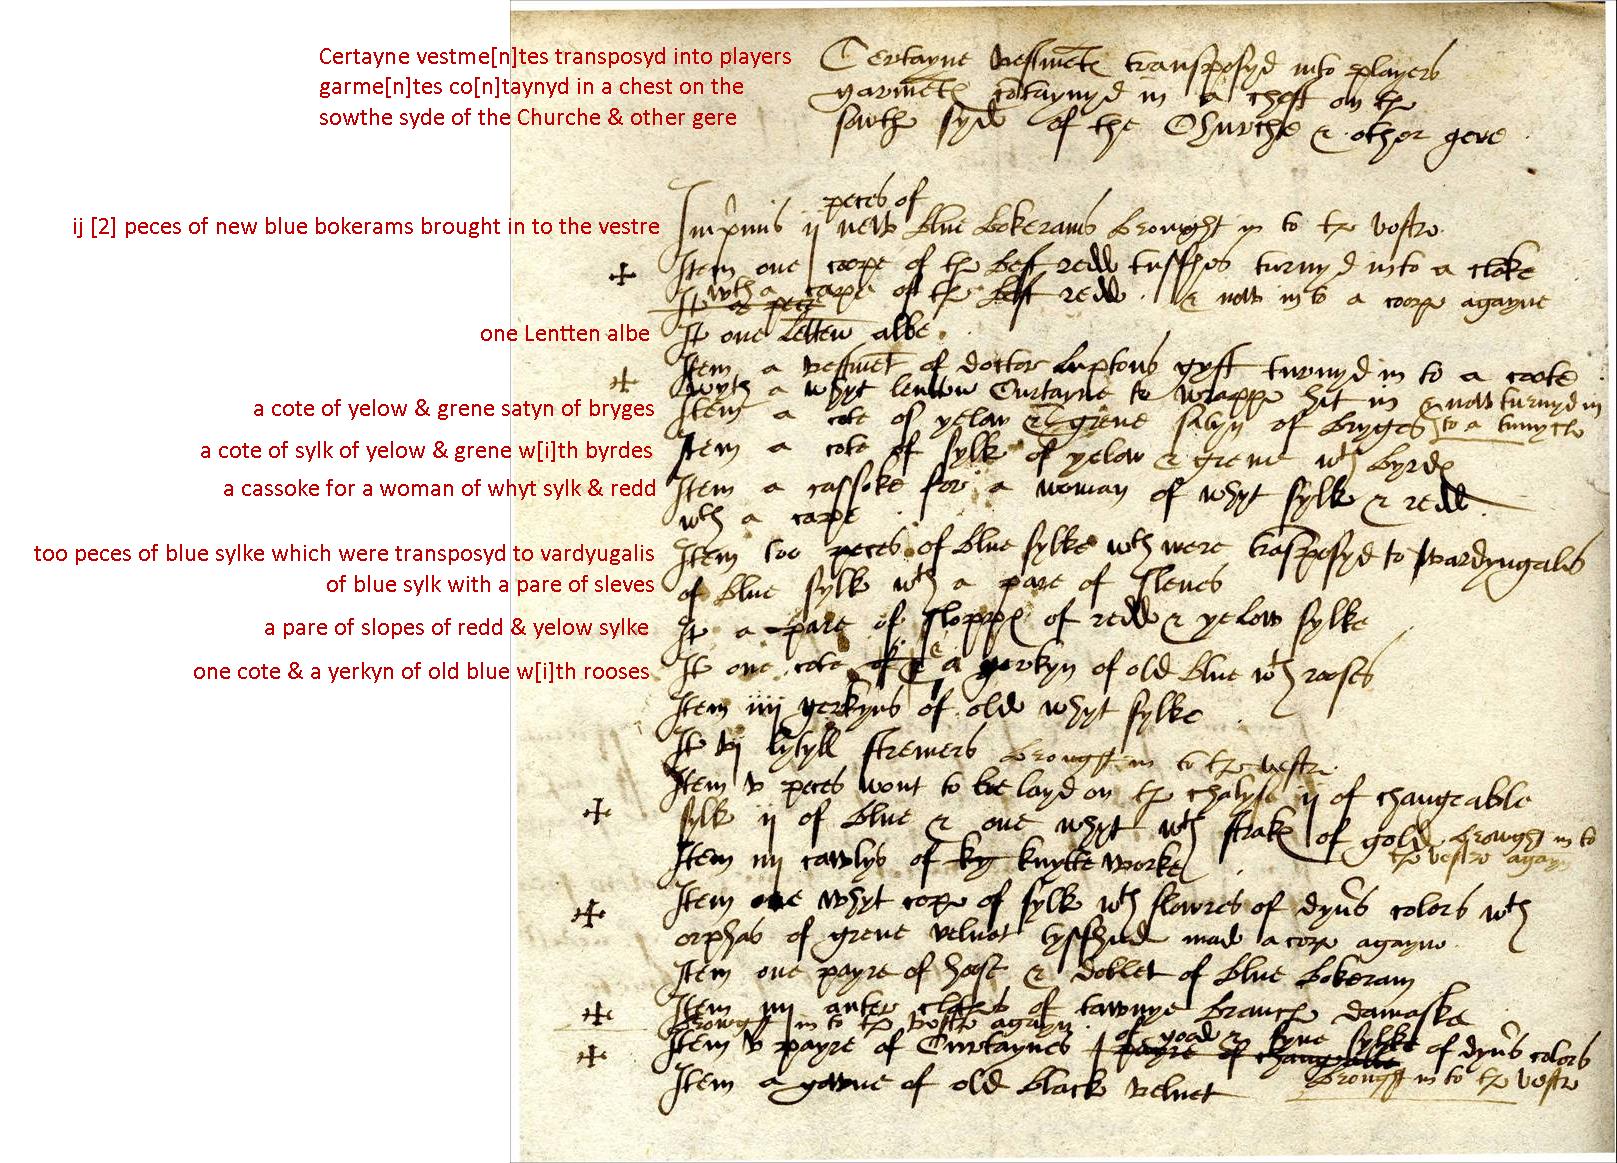 Certayne vestme[n]tes transposyd into players
garme[n]tes co[n]taynyd in a chest on the
sowthe syde of the Churche & other gere
ij [2] peces of new blue bokerams brought in to the vestre
one Lentten albe
a cote of yelow & grene satyn of bryges
a cote of sylk of yelow & grene w[i]th byrdes
a cassoke for a woman of whyt sylk & redd
too peces of blue sylke which were transposyd to vardyugalis
of blue sylk with a pare of sleves
a pare of slopes of redd & yelow sylke
one cote & a yerkyn of old blue w[i]th rooses
Certayne vestmēt transposyd into players
garmēt cōtaynyd in a chest on the
sowthe syde of the Churche & other gere
peces of
Imp'imis ij new blue bokerams brought in to the vestre
Item one coope of the best redd tysshes turnyd into a cloke
wth a cape of the best redd & now in to a coope agayne
It a pece
It one Lētten albe
Item a vestmēt of doctor Luptons gyft turnyd in to a coote
wyth a whyt lentten Curtayne to wrappe hit in & now turnyd in
Item a cote of yelow & grene satyn of bryges to a tunycle
Item a cote of sylk of yelow & grene wth byrdes
Item a cassoke for a woman of whyt sylk & redd
wth a cape
Item too peces of blue sylke wch were trāsposyd to vardyngalis
of blue sylk wth a pare of sleves
It a pare of sloppes of redd & yelow sylke
It one cote & a yerkyn of old blue wth rooses
Item iiij yerkyns of old whyt sylke
It vj lytyll stremers brought in to the vestre
Item v peces wont to be layd on the chalyse ij of changeable
sylk ij of blue & one whyt wth strakes of gold browght in to
the vestre agayn
Item iiij cawlys of knytte worke
Item one whyt cope of sylk wth flowres of dyu's colors wth
orphas of grene velvet made a cope agayne
Item one payre of hoose & doblet of blue bokeram
Item iiij anter clothes of tawnye branche damaske
browght in to the vestre agayn
of & fyne sylke
Item v payre of Curtaynes payre of changeable of dyu's colors
brought in to the vestre
Item a gowne of old black velvet